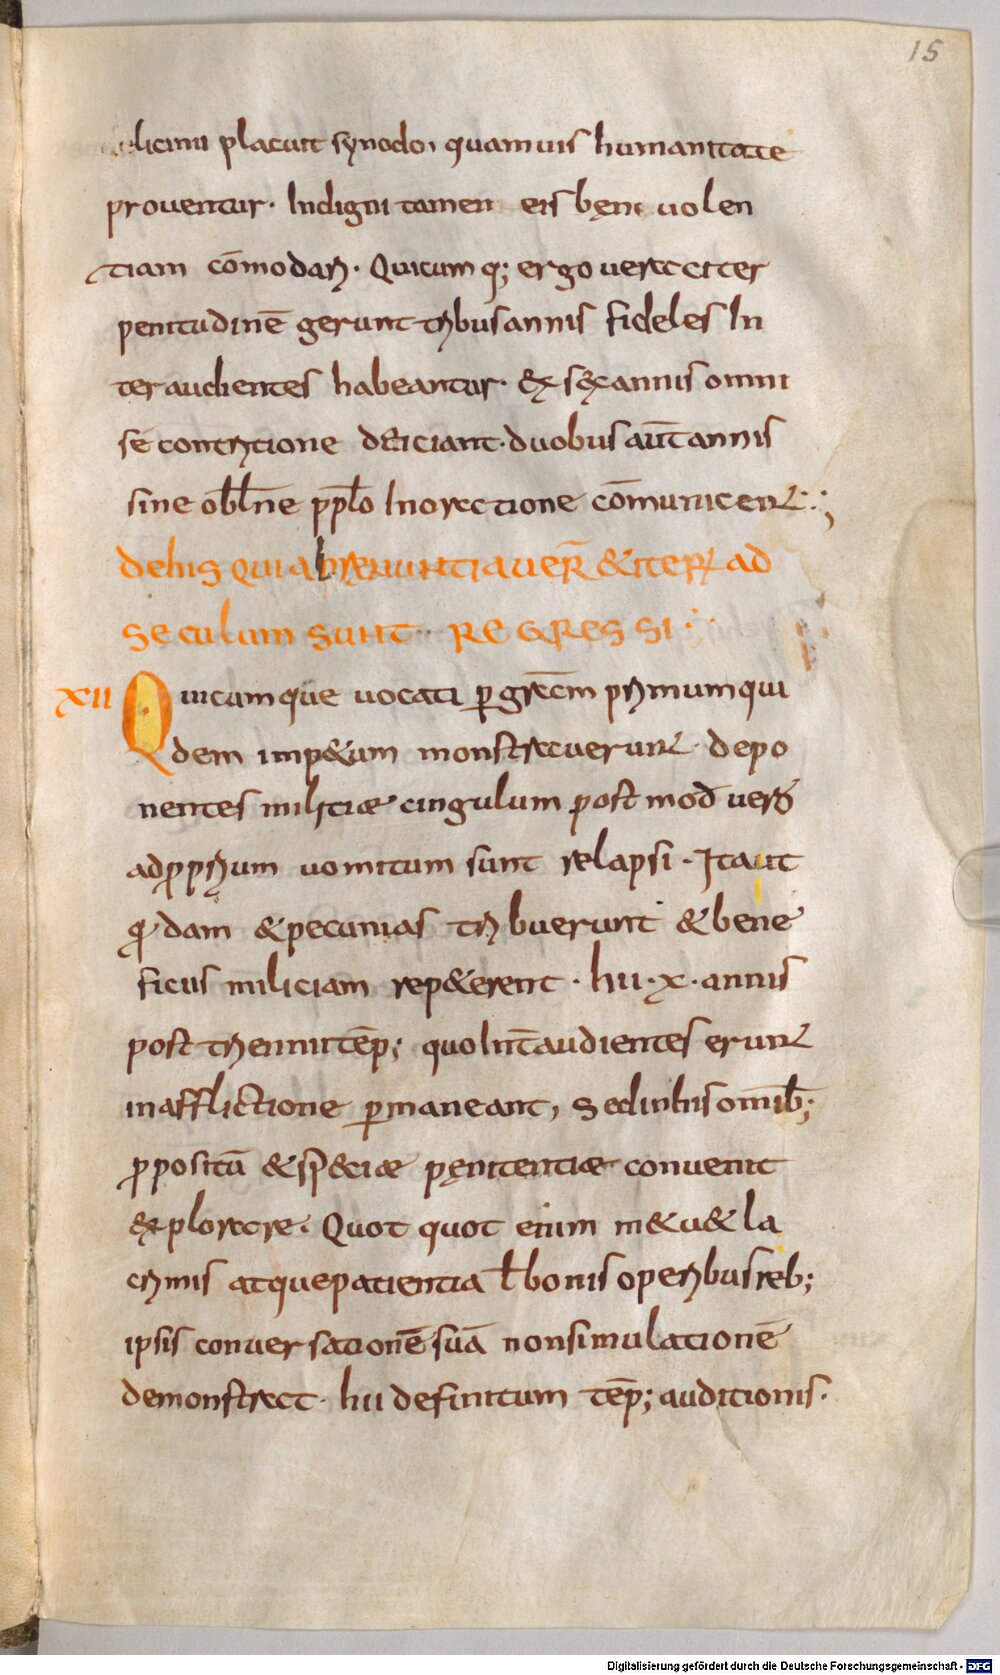 15
licinii placuit synodo, quamuis humanitate
proventur. Indigni tamen eis bene uolen
tiam cōmodari. Quicumq; ergo ueraciter
penitudinē gerunt tribus annis fideles In
ter audientes habeantur. & sex annis omni
se contritione deiciant. duobus aūt annis
sine oblōne pplo Inoratione cōmunicent:;
de his qui abrenuntiauer̄ & iter ad
seculum sunt regressi:
XII Quicumque uocati p grām primum qui
dem imp&um monstrauerunt depo
nentes militiæ cingulum post mod uero
ad proprium uomitum sunt relapsi. Ita ut
quidam & pecunias tribuerunt & bene
ficiis miliciam rep&erent. hii .x. annis
post triennii tēp; quo Int̄ audientes erunt
in afflictione pmaneant, Sed in his omib;
propositū & speciæ penitentiæ conuenit
explorare. Quot quot enim m&u & la
crimis atque patientia ł bonis operibus reb;
ipsis conuersationē suā non simulationē
demonstrat. hii definitum tēp; auditionis.
Digitalisierung gefördert durch die Deutsche Forschungsgemeinschaft - DFG